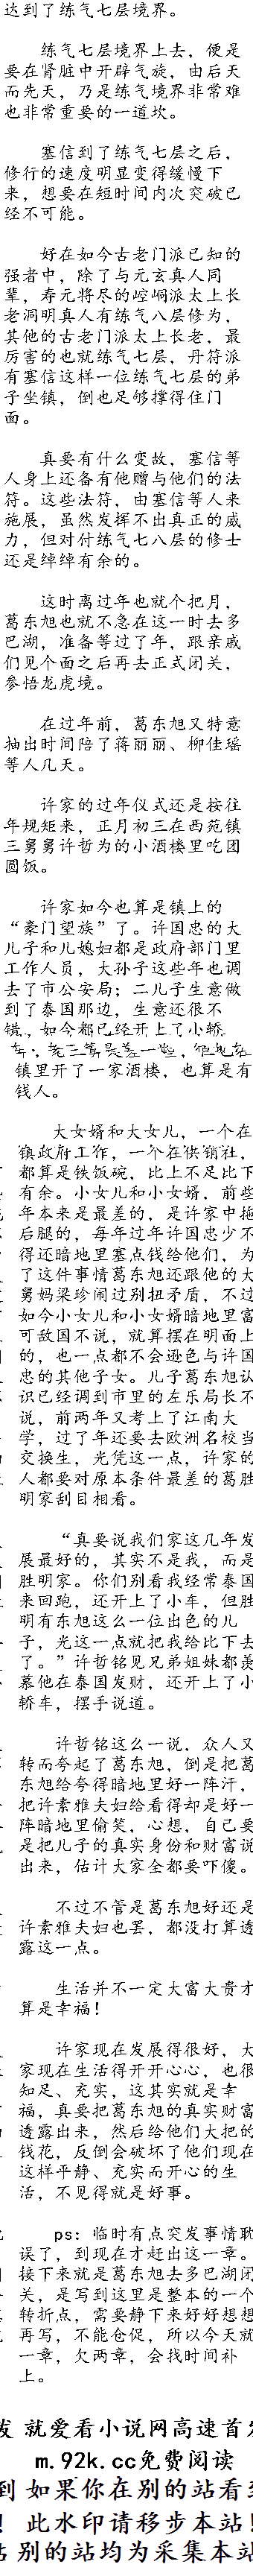 达到了练气七层境界。
练气七层境界上去，便是
要在肾脏中开辟气旋，由后天
而先天，乃是练气境界非常难
也非常重要的一道坎。
塞信到了练气七层之后，
修行的速度明显变得缓慢下
来，想要在短时间内次突破已
经不可能。
好在如今古老门派已知的
强者中，除了与元玄真人同
辈，寿元将尽的崆峒派太上长
老洞明真人有练气八层修为，
其他的古老门派太上长老，最
厉害的也就练气七层，丹符派
有塞信这样一位练气七层的弟
子坐镇，倒也足够撑得住门
面。
真要有什么变故，塞信等
人身上还备有他赠与他们的法
符。这些法符，由塞信等人来
施展，虽然发挥不出真正的威
力，但对付练气七八层的修士
还是绰绰有余的。
这时离过年也就个把月，
葛东旭也就不急在这一时去多
巴湖，准备等过了年，跟亲戚
们见个面之后再去正式闭关，
参悟龙虎境。
在过年前，葛东旭又特意
抽出时间陪了蒋丽丽、柳佳瑶
等人几天。
许家的过年仪式还是按往
年规矩来，正月初三在西苑镇
三舅舅许哲为的小酒楼里吃团
圆饭。
许家如今也算是镇上的
“豪门望族”了。许国忠的大
儿子和儿媳妇都是政府部门里
工作人员，大孙子这些年也调
去了市公安局；二儿子生意做
到了泰国那边，生意还很不
错，如今都已经开上了小轿
车；
镇里开了一家酒楼，也算是有
钱人。
大女婿和大女儿，一个在
镇政府工作，一个在供销社，
都算是铁饭碗，比上不足比下
有余。小女儿和小女婿，前些
年本来是最差的，是许家中拖
后腿的，每年过年许国忠少不
得还暗地里塞点钱给他们，为
了这件事情葛东旭还跟他的大
舅妈梁珍闹过别扭矛盾，不过
如今小女儿和小女婿暗地里富
可敌国不说，就算摆在明面上
的，也一点都不会逊色与许国
忠的其他子女。儿子葛东旭认
识已经调到市里的左乐局长不
说，前两年又考上了江南大
学，过了年还要去欧洲名校当
交换生，光凭这一点，许家的
人都要对原本条件最差的葛胜
明家刮目相看。
“真要说我们家这几年发
展最好的，其实不是我，而是
胜明家。你们别看我经常泰国
来回跑，还开上了小车，但胜
明有东旭这么一位出色的儿
子，光这一点就把我给比下去
了。”许哲铭见兄弟姐妹都羡
慕他在泰国发财，还开上了小
轿车，摆手说道。
许哲铭这么一说，众人又
转而夸起了葛东旭，倒是把葛
东旭给夸得暗地里好一阵汗，
把许素雅夫妇给看得却是好一
阵暗地里偷笑，心想，自己要
是把儿子的真实身份和财富说
出来，估计大家全都要吓傻。
不过不管是葛东旭好还是
许素雅夫妇也罢，都没打算透
露这一点。
生活并不一定大富大贵才
算是幸福！
许家现在发展得很好，大
家现在生活得开开心心，也很
知足、充实，这其实就是幸
福，真要把葛东旭的真实财富
透露出来，然后给他们大把的
钱花，反倒会破坏了他们现在
这样平静、充实而开心的生
活，不见得就是好事。
ps：临时有点突发事情耽
误了，到现在才赶出这一章。
接下来就是葛东旭去多巴湖闭
关，是写到这里是整本的一个
转折点，需要静下来好好想想
再写，不能仓促，所以今天就
一章，欠两章，会找时间补
上。
发 就爱看小说网高速首发
m.92k.cc免费阅读
到 如果你在别的站看到
！ 此水印请移步本站！
站 别的站均为采集本站